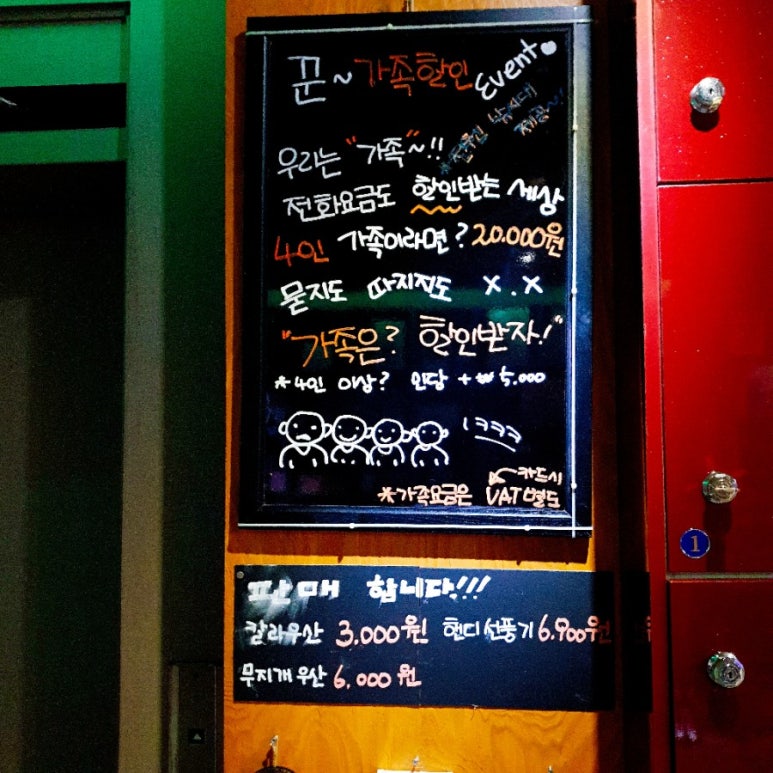 꾼~가족할인 Event
*전원 누시대 제공~!
우리는 "가족"~!!
전화요금도 할인받는 세상
4인 가족이라면? 20.000원
묻지도 따지지도 x.x
"가족은? 할인받자!"
*4인 이상? 인당 +₩5.000
ㅋㅋㅋ
카드시
*가족요금은 VAT별도
판매 합니다!!!
칼라우산 3.000원 핸디선풍기 6.900원
무지개우산 6,000원
1